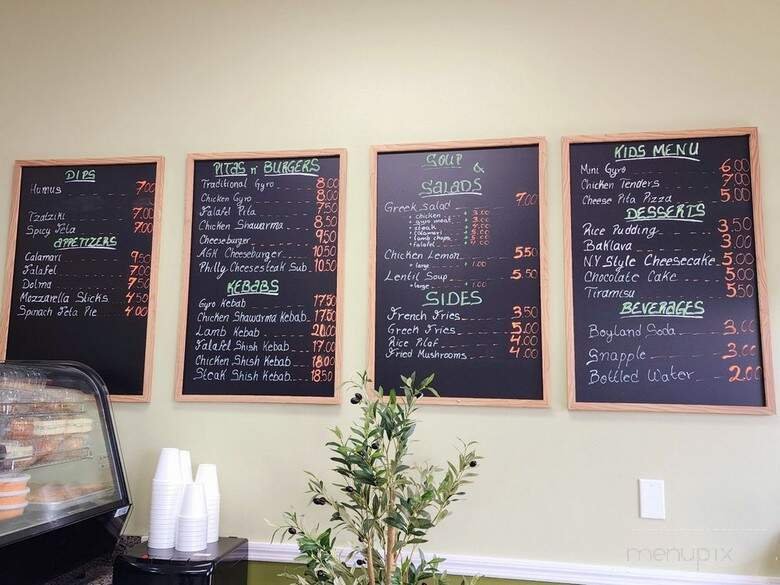 DIPS
Humus 7.00
Tzatziki 7.00
Spicy Feta 7.00
APPETIZERS
Calamari 9.50
Falafel 7.00
Dolma 7.50
Mozzarella Sticks 4.50
Spinach Feta Pie 4.00
PITAS n' BURGERS
Traditional Gyro 8.00
Chicken Gyro 8.00
Falafel Pita 7.50
Chicken Shawarma 8.50
Cheeseburger 9.50
AGH Cheeseburger 10.50
Philly Cheesesteak Sub 10.50
KEBABS
Gyro Kebab 17.50
Chicken Shawarma Kebab 17.50
Lamb Kebab 20.00
Falafel Shish Kebab 17.00
Chicken Shish Kebab 18.00
Steak Shish Kebab 18.50
SOUP &
SALADS
Greek Salad 7.00
+ chicken + 3.00
+ gyro meat
+ steak
+ calamari
+ lamb chops
+ falafel
Chicken Lemon 5.50
+ large + 1.00
Lentil Soup 5.50
+ large + 1.00
SIDES
French Fries 3.50
Greek Fries 5.00
Rice Pilaf 4.00
Fried Mushrooms 4.00
KIDS MENU
Mini Gyro 6.00
Chicken Tenders 7.00
Cheese Pita Pizza 5.00
DESSERTS
Rice Pudding 3.50
Baklava 3.00
NY Style Cheesecake 5.00
Chocolate Cake 5.00
Tiramisu 5.50
BEVERAGES
Boyland Soda 3.00
Snapple 3.00
Bottled Water 2.00
menupix